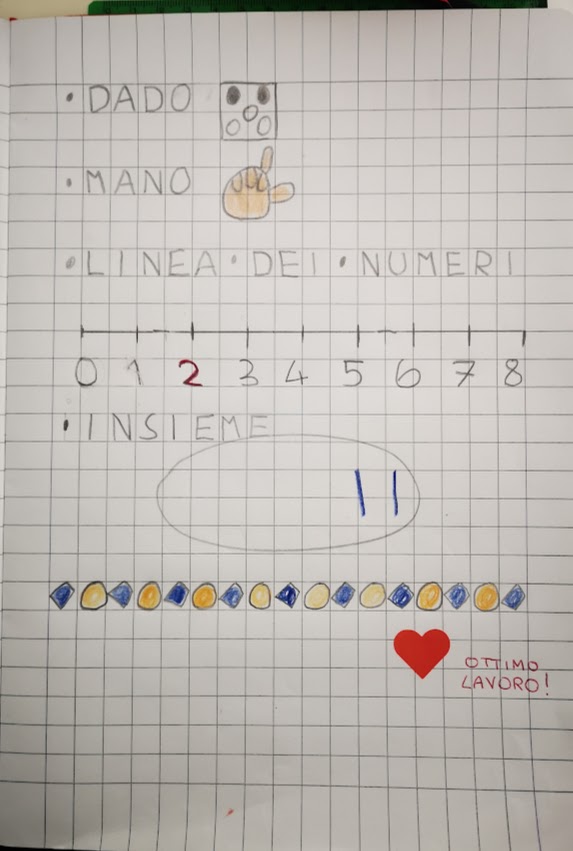 • DADO
• MANO
• LINEA • DEI • NUMERI
0 1 2 3 4 5 6 7 8
• INSIEME
OTTIMO
LAVORO!